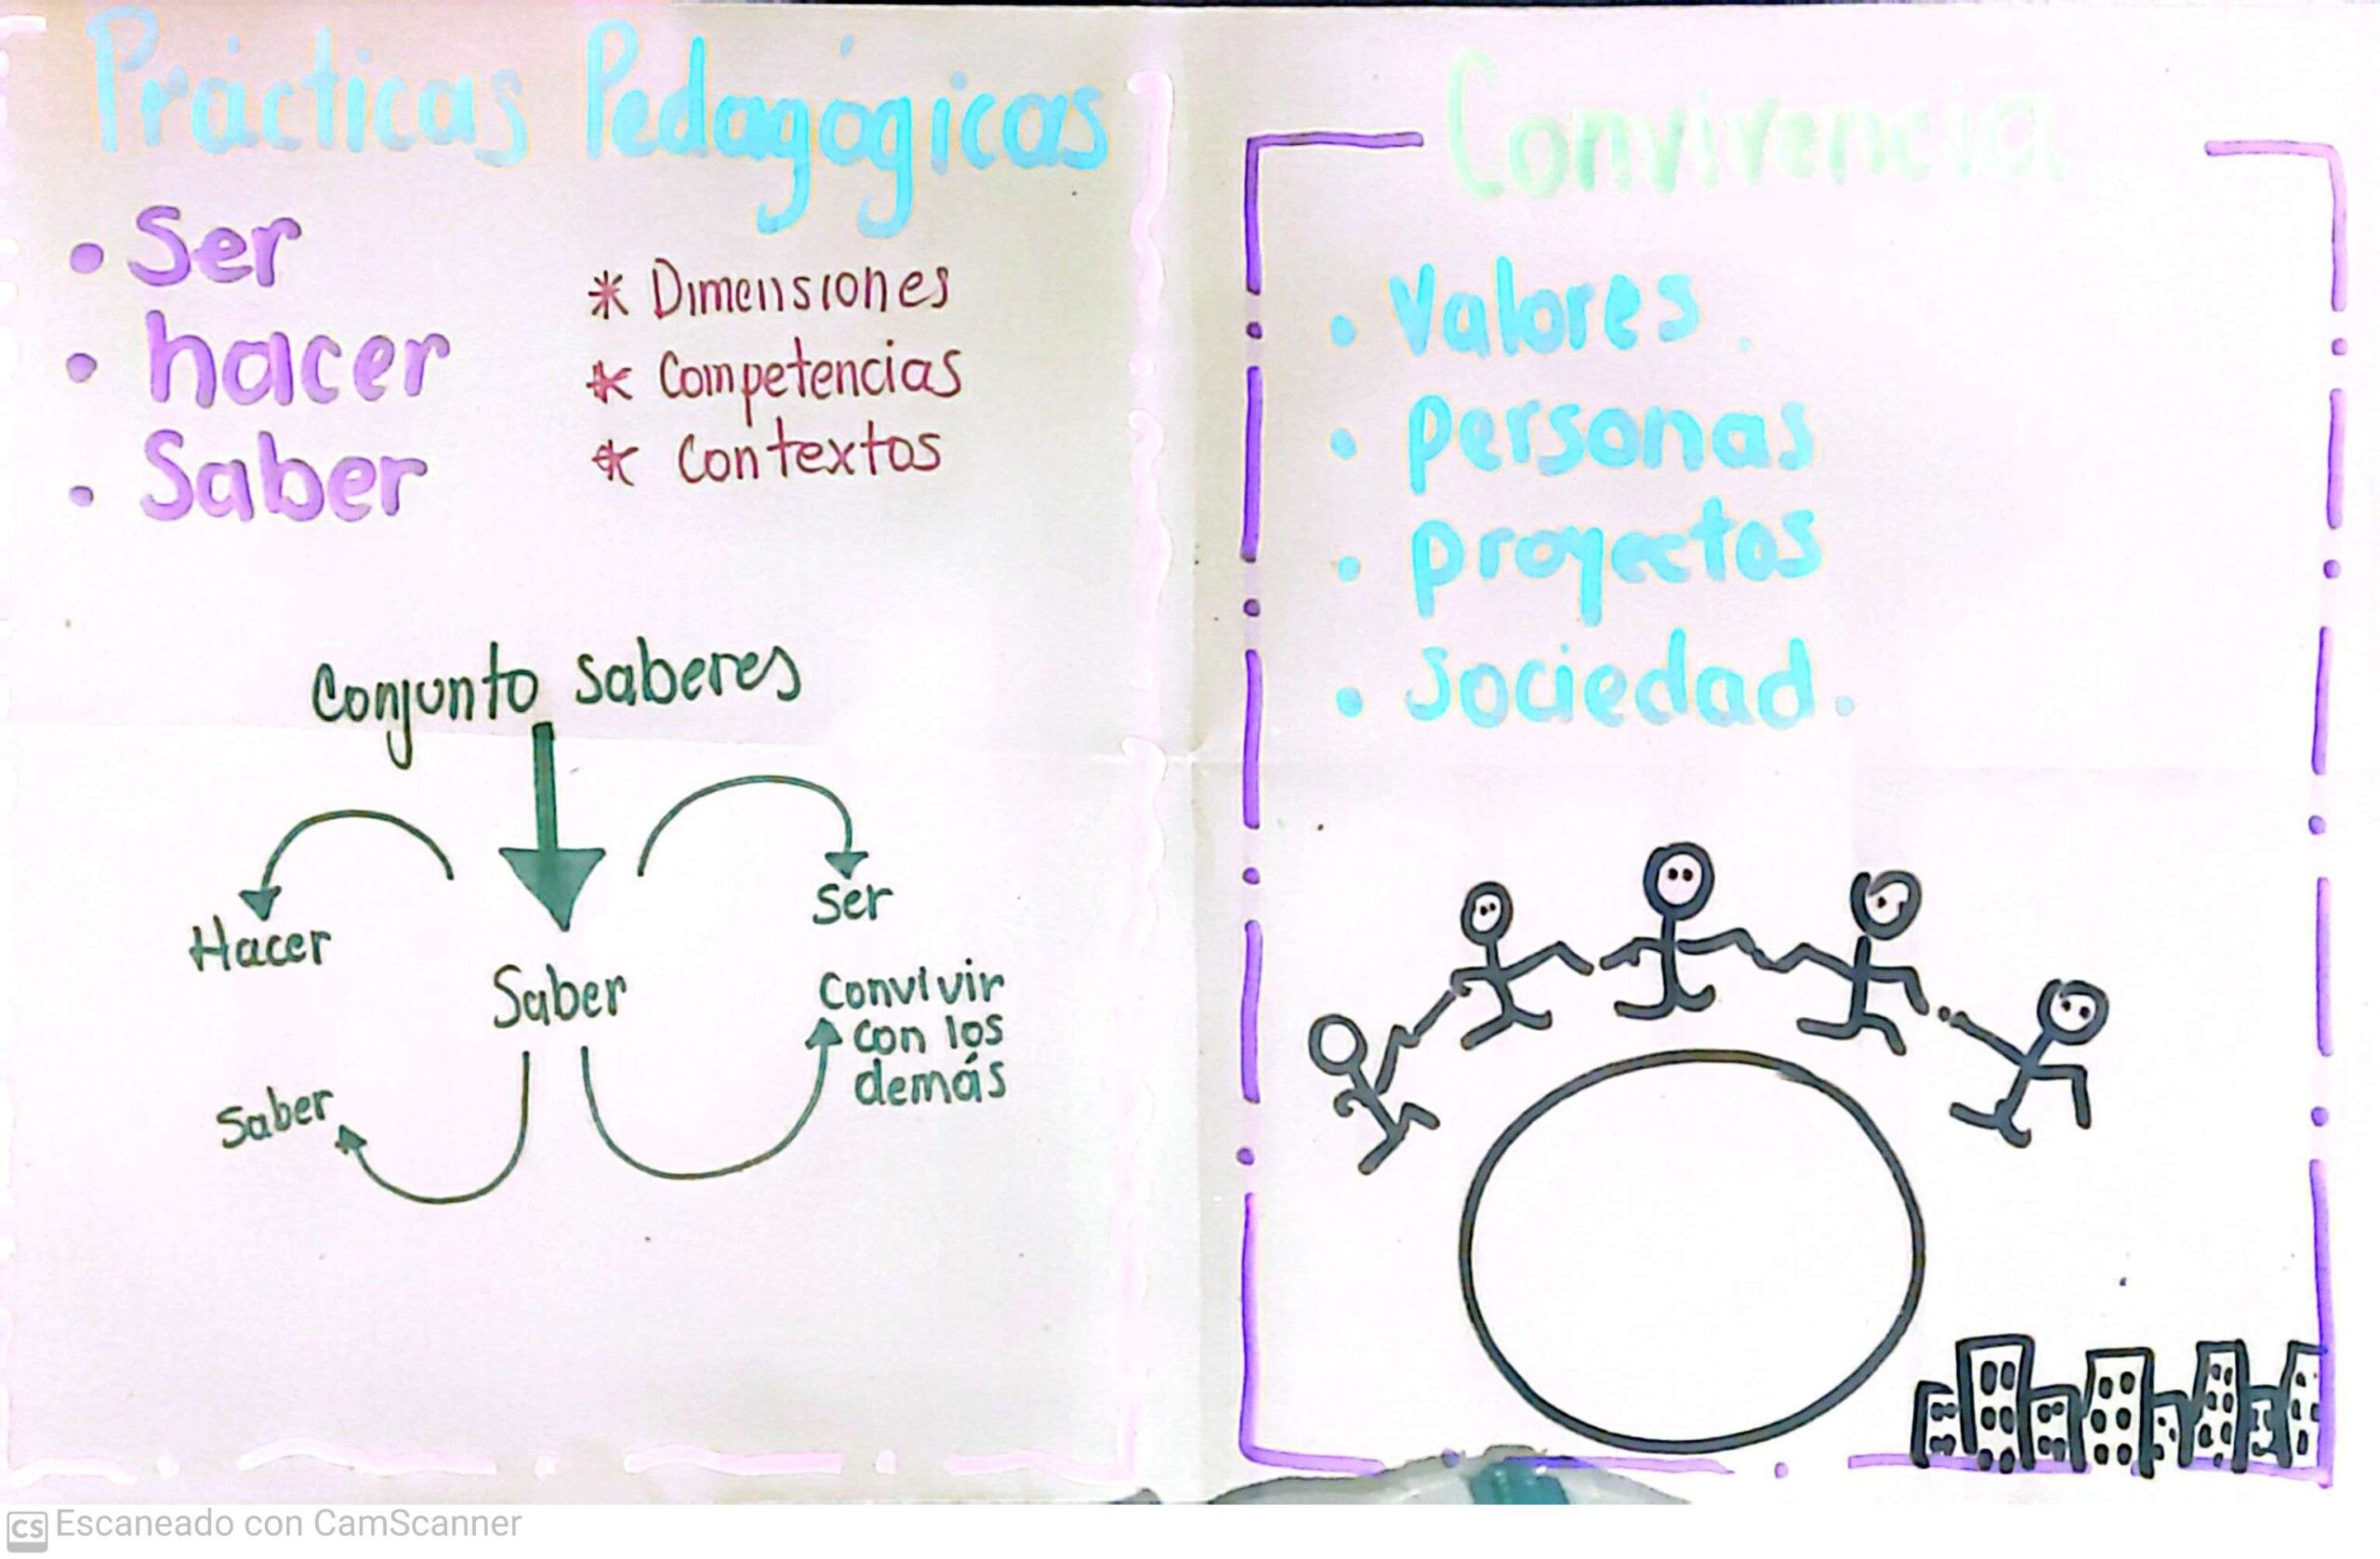 Prácticas Pedagógicas
• Ser
• hacer
• Saber
* Dimensiones
* Competencias
* Contextos
Conjunto saberes
Hacer
Ser
Saber
Convivir
con los
demás
Saber
Convivencia
• Valores.
• personas
• proyectos
• sociedad.
CS Escaneado con CamScanner